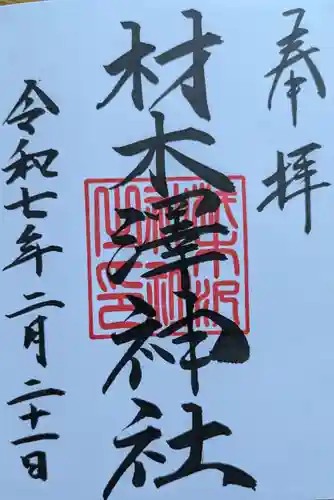 奉拝
材木澤神社
令和七年二月二十一日